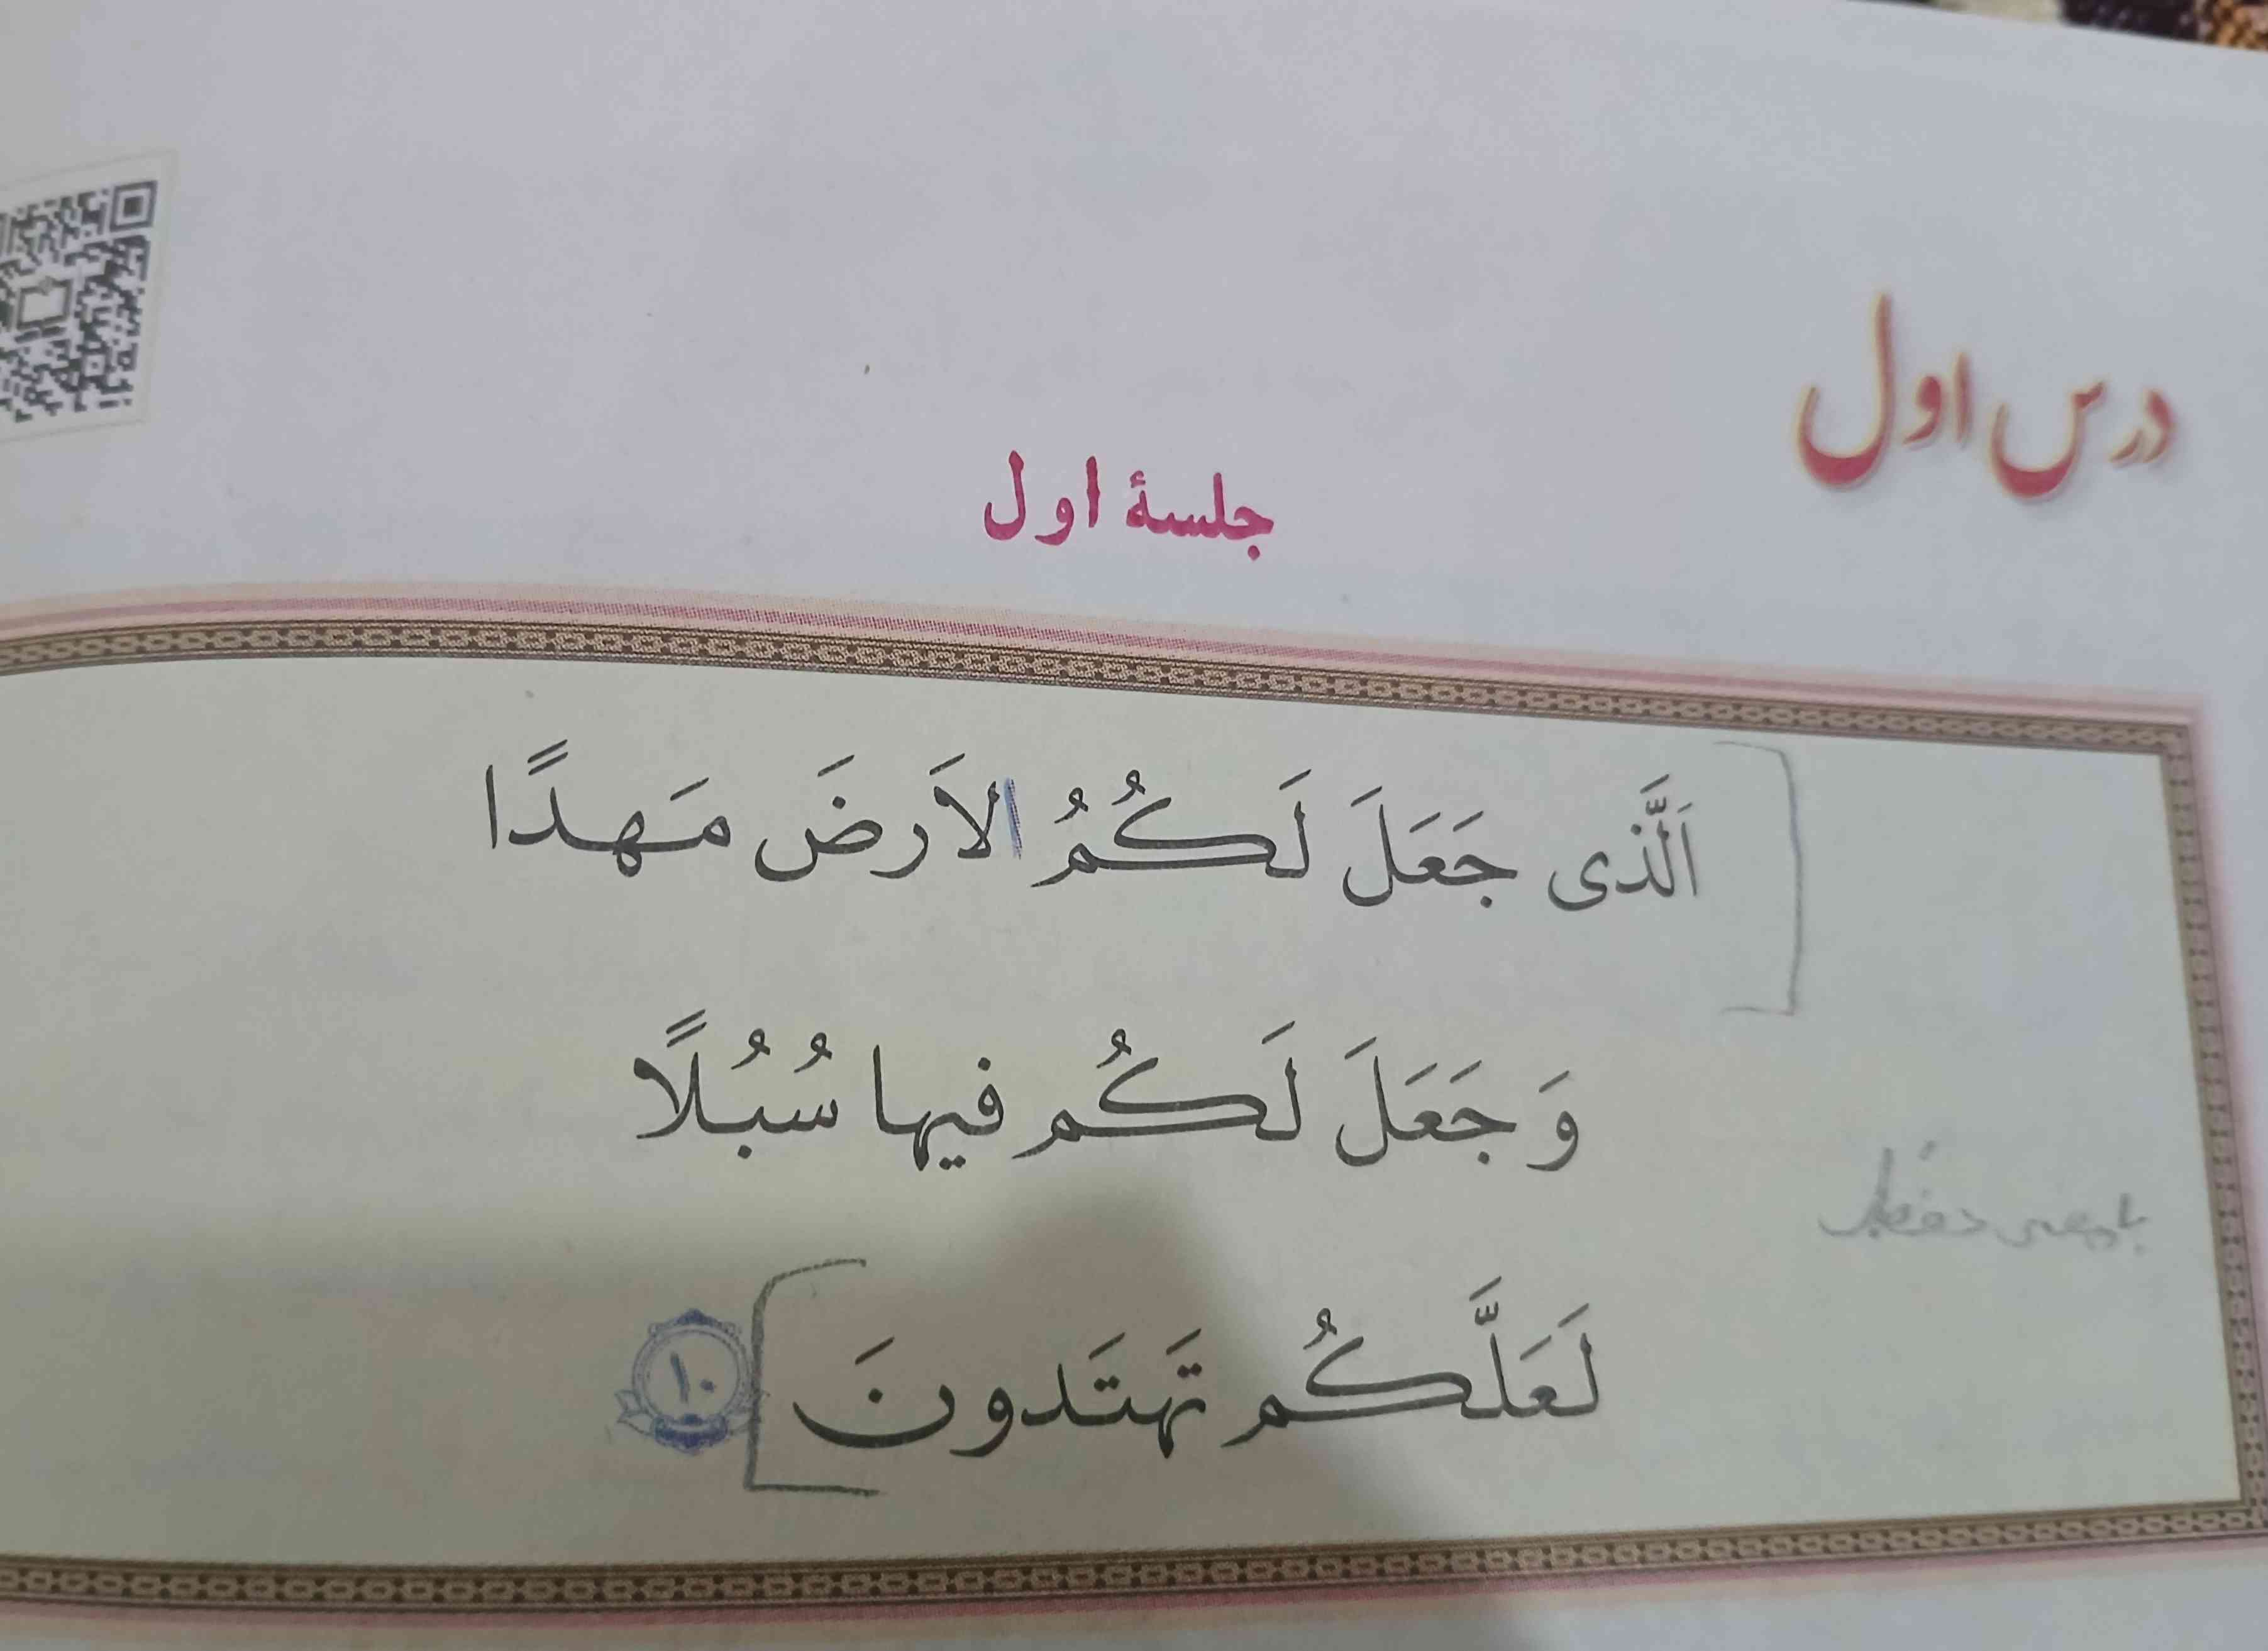 درس اول
جلسۀ اول
اَلَّذی جَعَلَ لَکُمُ الاَرضَ مَهدًا
وَ جَعَلَ لَکُم فیها سُبُلًا
لَعَلَّکُم تَهتَدونَ ۱۰